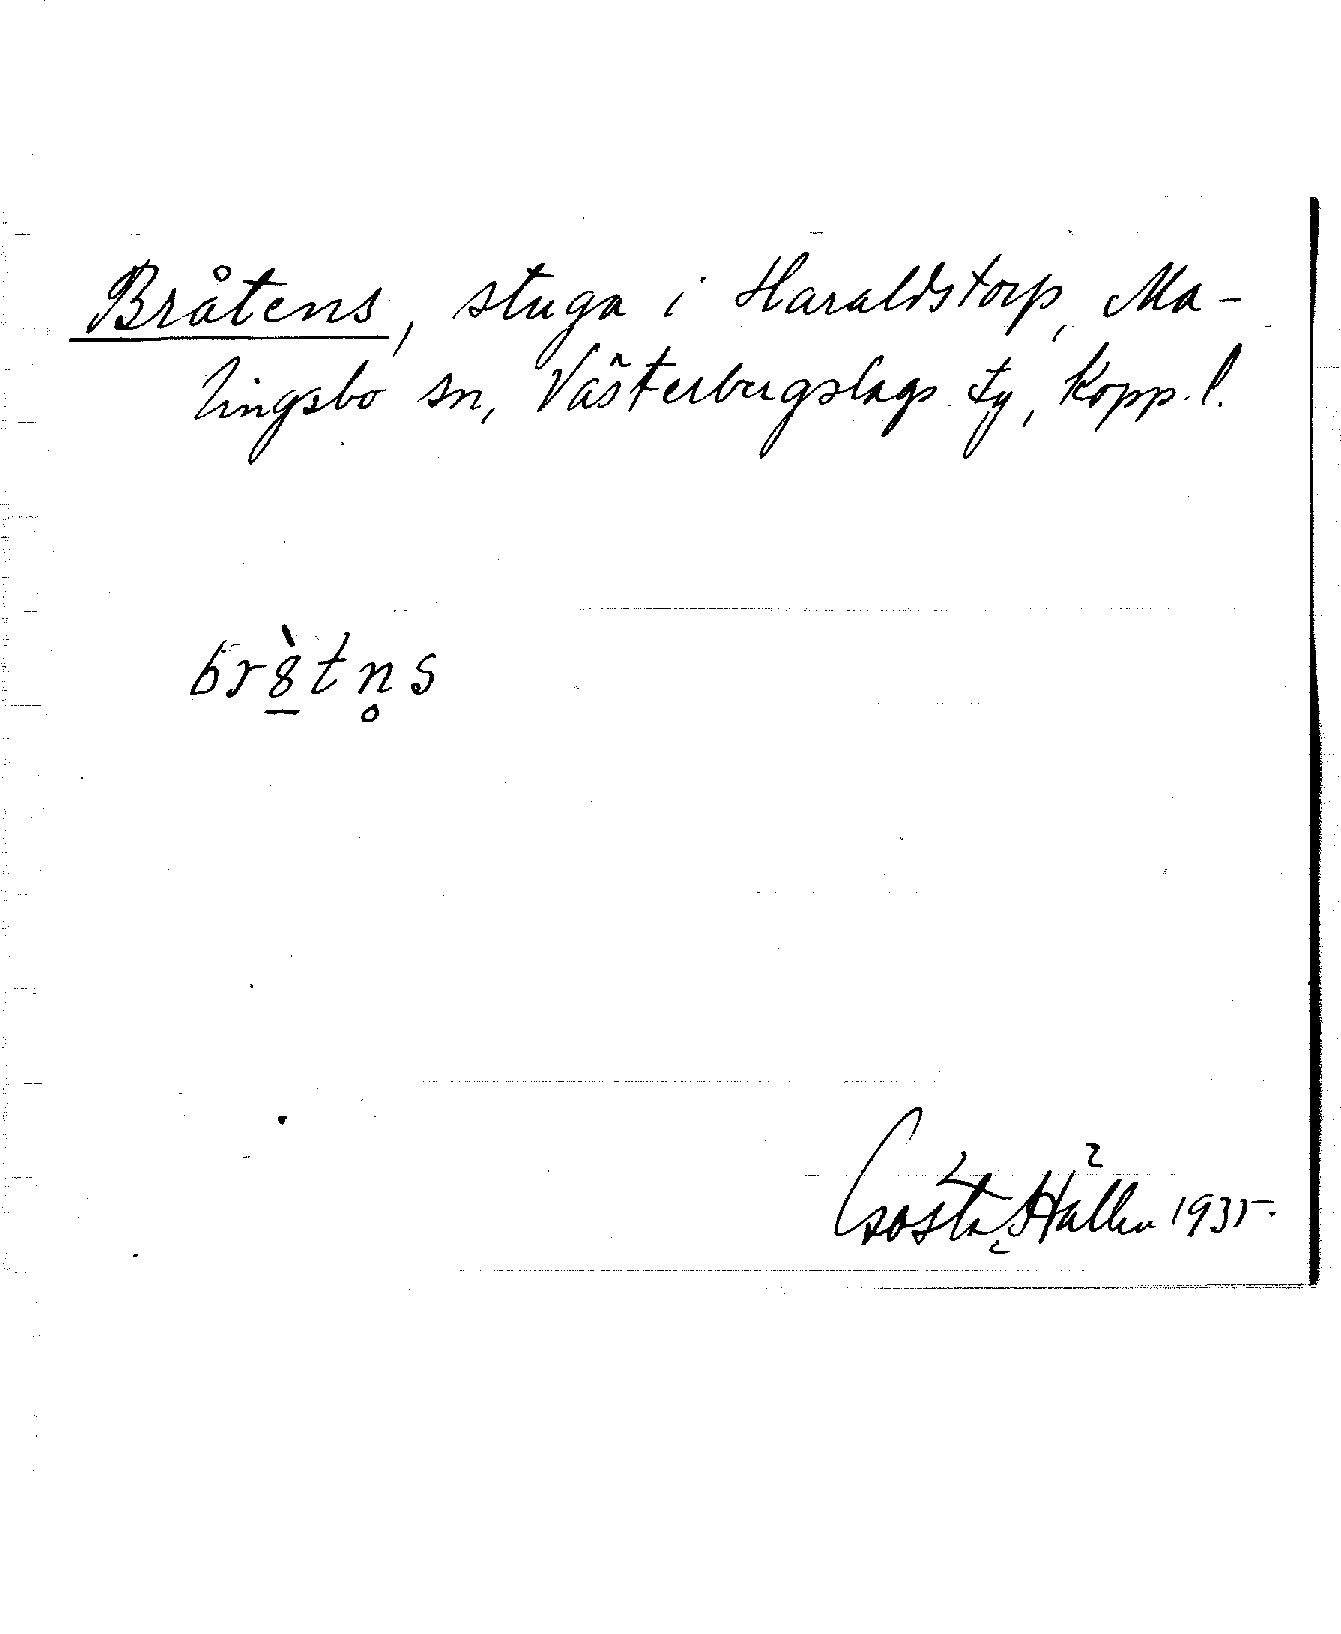 Bråtens, stuga i Haraldstorp, Ma-
lingsbo sn, Västerbergslags tg, Kopp. l.
br8̠̀tn̥s
Gösta Hallen 1935.